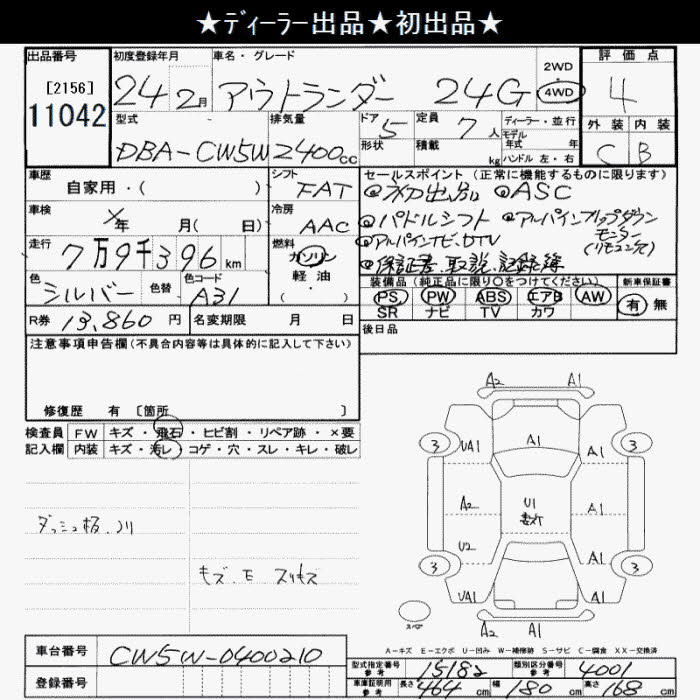 ★ディーラー出品★初出品★
出品番号 初度登録年月 車名・グレード 2WD 4WD 評価点
[2156]
11042
24 2月 アウトランダー 24G 4
型式 排気量 ドア 5 定員 7人 ディーラー・並行 外装 内装
モデル年式 年
DBA-CW5W 2400cc 形状 積載 kg ハンドル 左・右 C B
車歴 シフト セールスポイント (正常に機能するものに限ります)
自家用・( ) FAT ◎初出品 ◎ASC
車検 年 月( 日) 冷房 AAC ◎パドルシフト ◎アルパインフリップダウン
モニター
(リモコン欠)
走行 7万9千396km 燃料 ガソリン・軽油・ ◎アルパインナビ、DTV
◎保証書、取説、記録簿
色 シルバー 色替 色コード A31 装備品 (純正品に限り○をつけてください) 新車保証書
PS PW ABS エアB AW 有 無
SR ナビ TV カワ
R券 13,860円 名変期限 月 日 後日品
注意事項申告欄(不具合内容等は具体的に記入して下さい)
修復歴 有 〔箇所 〕
検査員 FW キズ・飛石・ヒビ割・リペア跡・×要
記入欄 内装 キズ・汚レ・コゲ・穴・スレ・キレ・破レ
A2 A1
3 UA1 A1 3
A1
A2 U1 A1
U2 A1
3 A1 3
A1
A2 U1
スペア
ダッシュ板、ノリ
キズ・E スリキズ
A-キズ E-エクボ U-凹み W-補修跡 S-サビ C-腐食 XX-交換済
車台番号 CW5W-0400210
型式指定番号 参考 15182 類別区分番号 参考 4001
登録番号
車庫証明用 参考 長さ 464cm 幅 180cm 高さ 168cm